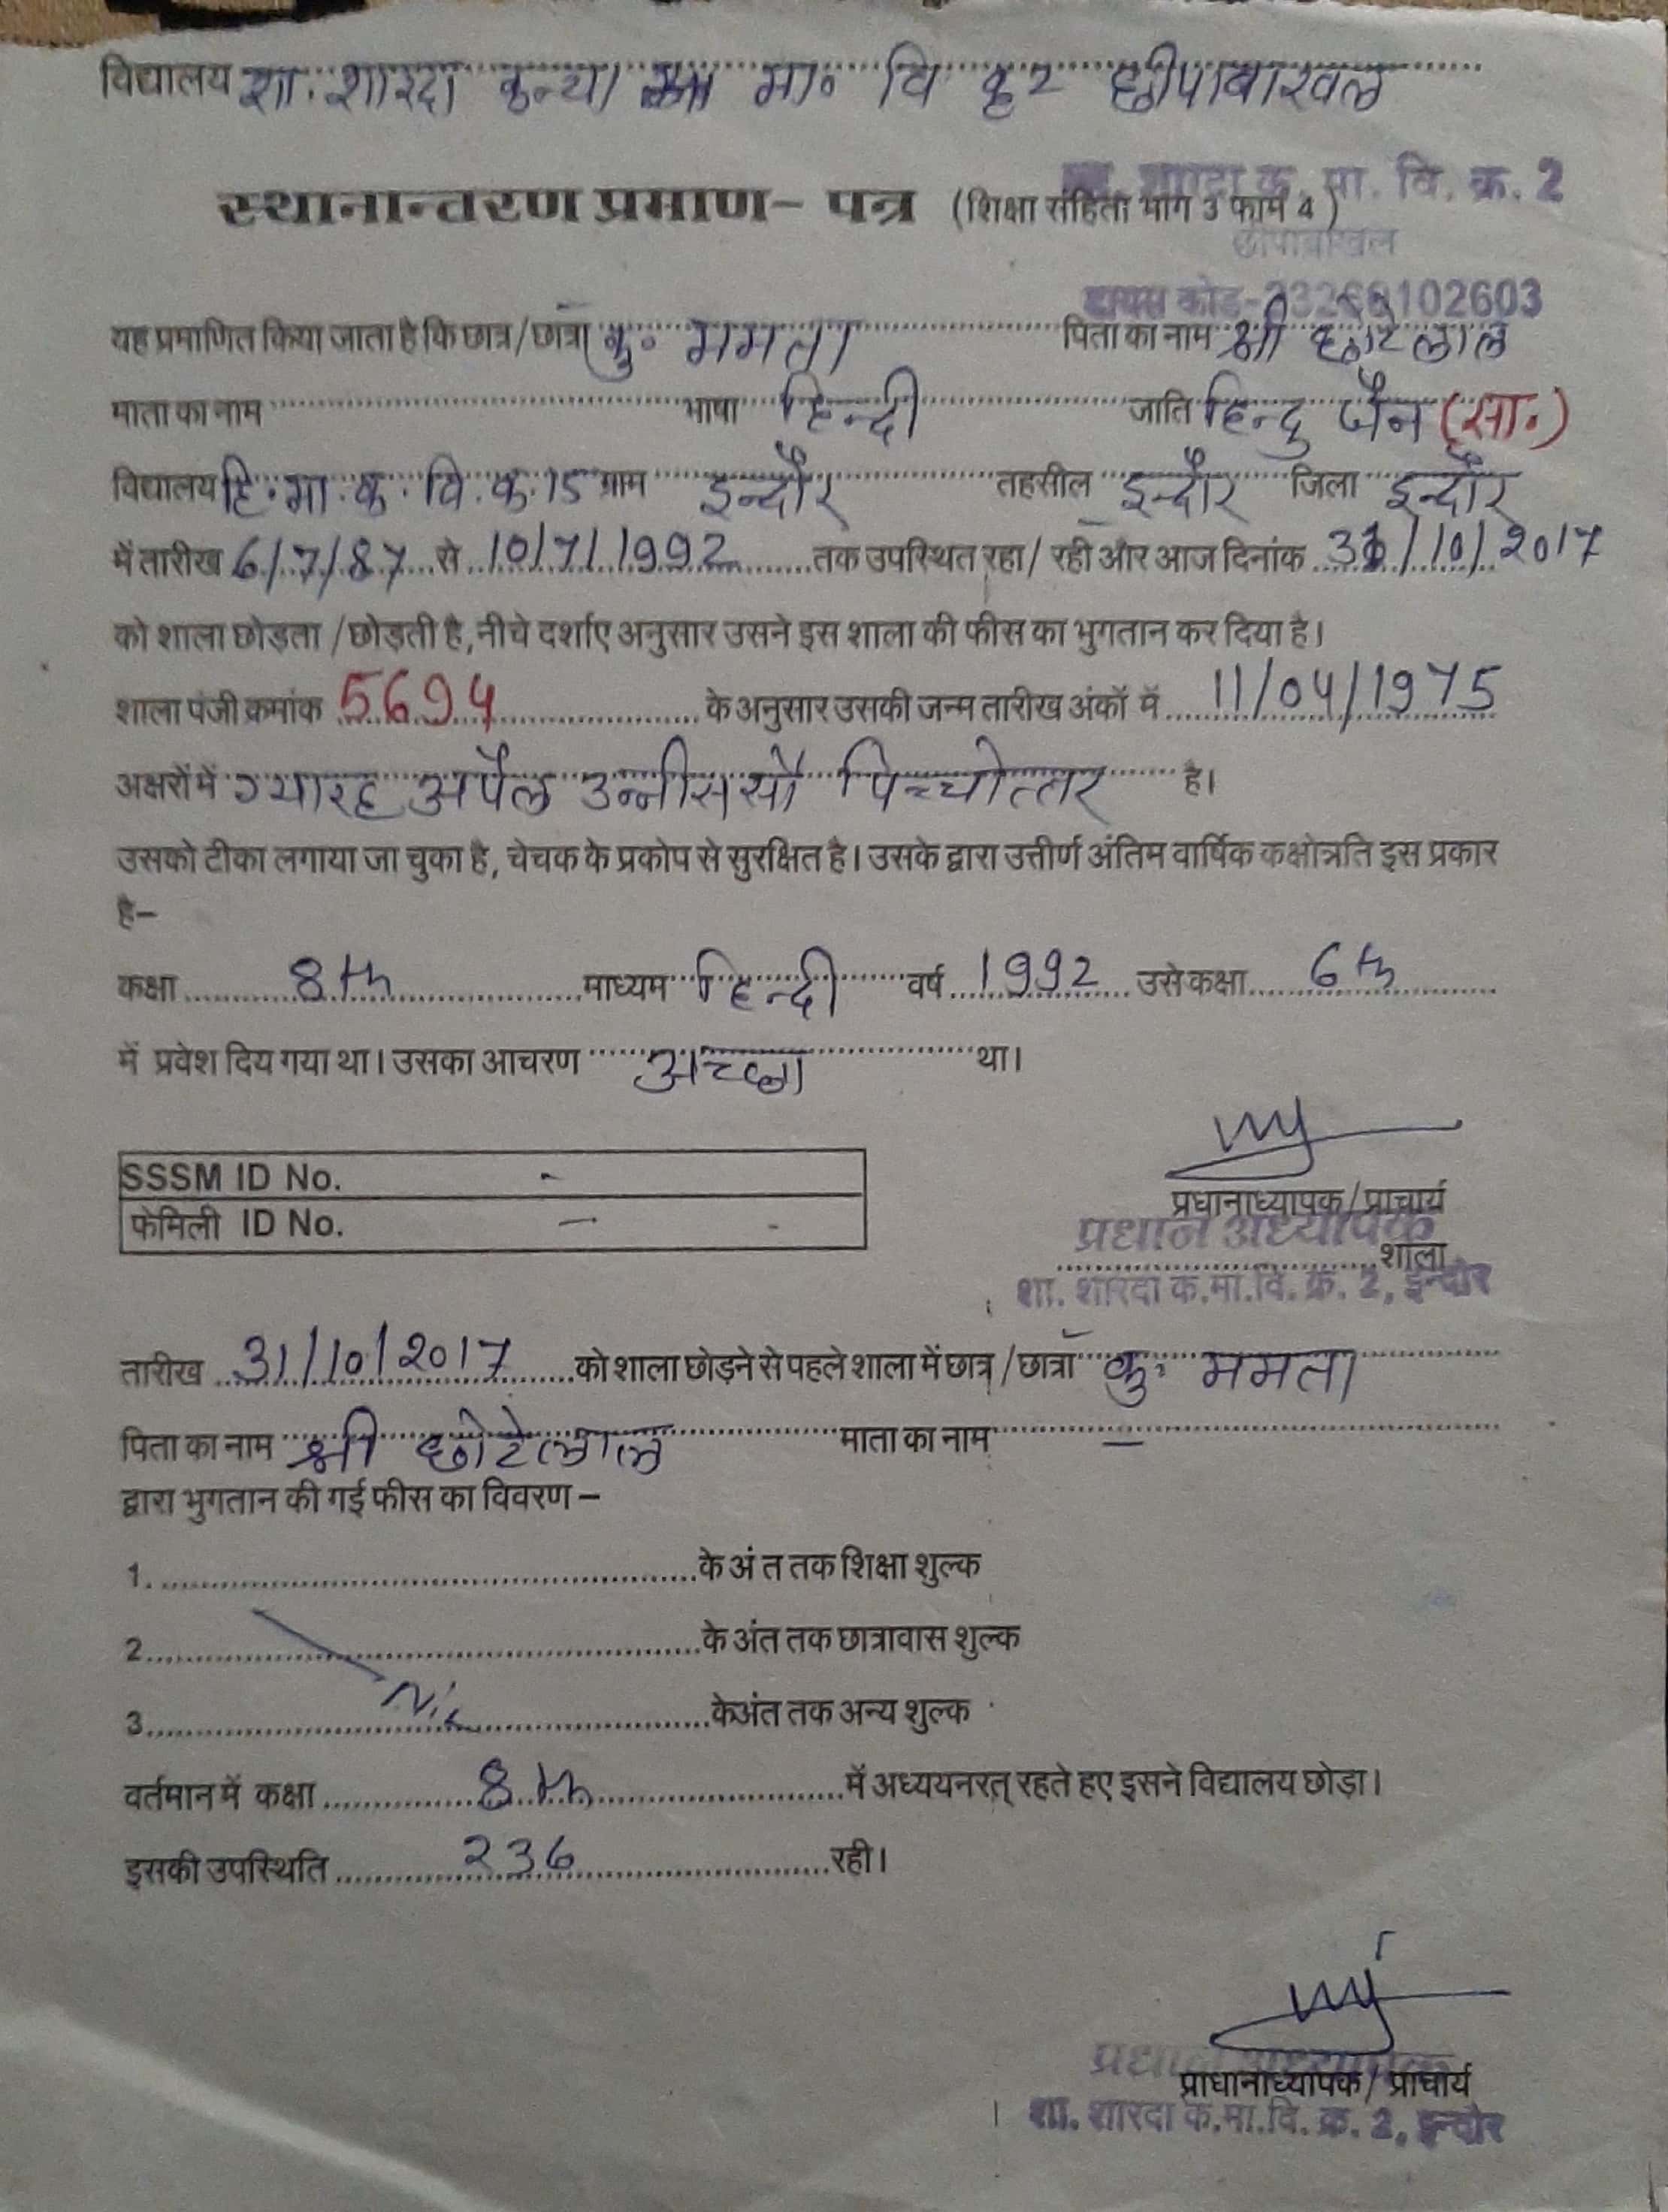 विद्यालय शा. शारदा कन्या मा० वि क्र 2 छीपाबाखल
शा. शारदा क. मा. वि. क्र. 2
स्थानान्तरण प्रमाण– पत्र (शिक्षा संहिता भाग 3 फाम 4)
छीपाबाखल
डायस कोड-23260102603
यह प्रमाणित किया जाता है कि छात्र/छात्रा कु० ममता पिता का नाम श्री छोटेलाल
माता का नाम भाषा हिन्दी जाति हिन्दु जैन (सा.)
विद्यालय हि. मा. क. वि. क्र. 15 ग्राम इन्दौर तहसील इन्दौर जिला इन्दौर
में तारीख 6/7/87 से 10/7/1992 तक उपस्थित रहा/ रही और आज दिनांक 31/10/2017
को शाला छोड़ता /छोड़ती है, नीचे दर्शाए अनुसार उसने इस शाला की फीस का भुगतान कर दिया है।
शाला पंजी क्रमांक 5694 के अनुसार उसकी जन्म तारीख अंकों में 11/04/1975
अक्षरों में ग्यारह अप्रैल उन्नीस सौ पिच्चोत्तर है।
उसको टीका लगाया जा चुका है, चेचक के प्रकोप से सुरक्षित है। उसके द्वारा उत्तीर्ण अंतिम वार्षिक कक्षोन्नति इस प्रकार
है–
कक्षा 8th माध्यम हिन्दी वर्ष 1992 उसे कक्षा 6th
में प्रवेश दिय गया था। उसका आचरण अच्छा था।
SSSM ID No. -
फेमिली ID No. –
प्रधानाध्यापक/प्राचार्य
प्रधान अध्यापक
शाला
शा. शारदा क.मा.वि. क्र. 2, इन्दौर
तारीख 31/10/2017 को शाला छोड़ने से पहले शाला में छात्र /छात्रा कु० ममता
पिता का नाम श्री छोटेलाल माता का नाम –
द्वारा भुगतान की गई फीस का विवरण –
1. के अं त तक शिक्षा शुल्क
2 के अंत तक छात्रावास शुल्क
3 Nil केअंत तक अन्य शुल्क
वर्तमान में कक्षा 8th में अध्ययनरत् रहते हए इसने विद्यालय छोड़ा।
इसकी उपस्थिति 236 रही।
प्रधान अध्यापक
प्राधानाध्यापक/ प्राचार्य
शा. शारदा क.मा.वि. क्र. 2, इन्दौर